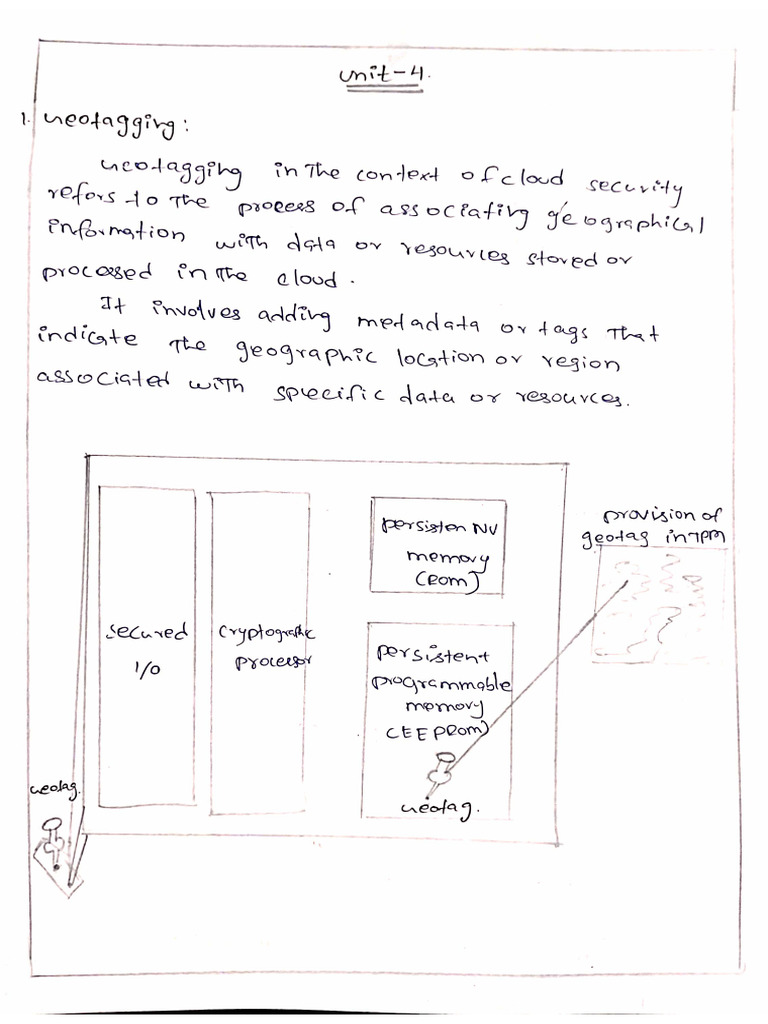 Unit-4.
1. Geotagging:
Geotagging in the context of cloud security
refors to the process of associating geographical
information with data or resources stored or
processed in the cloud.
It involves adding metadata or tags that
indicate the geographic location or region
associated with specific data or resources.
provision of
geotag in TPM
persisten NV
memory
(ROM)
secured
I/O
cryptographic
processor
persistent
programmable
memory
(EEPROM)
Geotag.
Geotag.